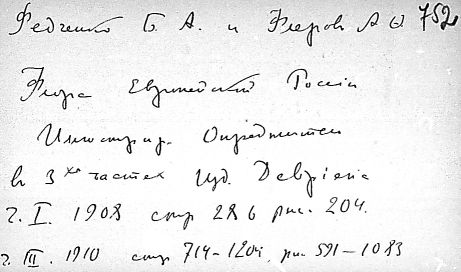 Федченко Б. А. и Флеров А Ф 752
Флора Европейской России
Иллюстрир. Определитель
в 3х частях изд. Девриена
ч. I. 1908 стр 286 рис. 204.
ч. III. 1910 стр 714-1204, рис. 591-1083